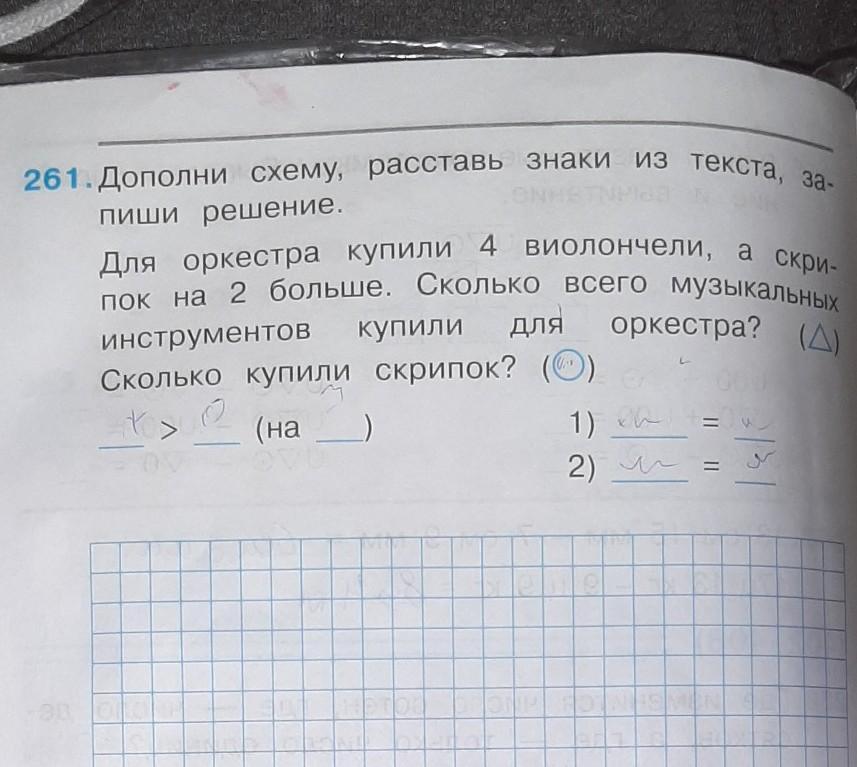 261. Дополни схему, расставь знаки из текста, за-
пиши решение.
Для оркестра купили 4 виолончели, а скри-
пок на 2 больше. Сколько всего музыкальных
инструментов купили для оркестра? (△)
Сколько купили скрипок? (○)
> (на ) 1) =
2) =